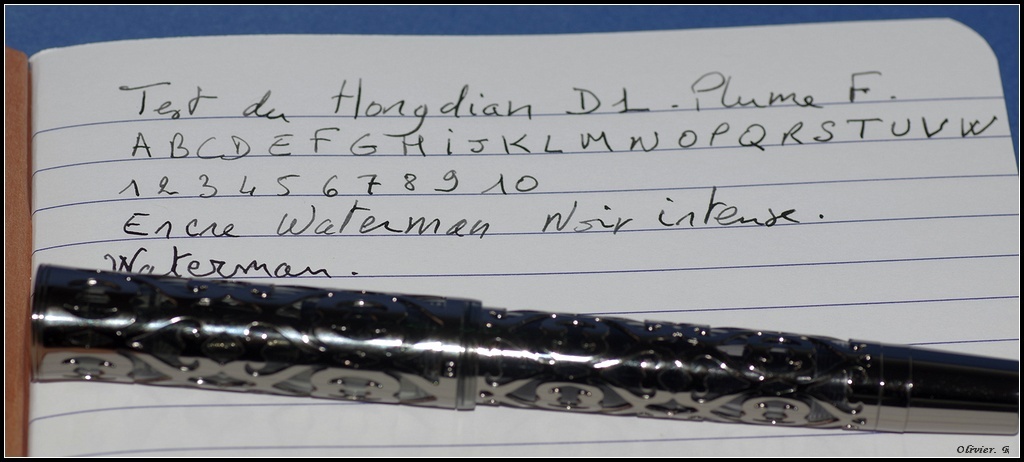 Test du Hongdian D1. Plume F.
A B C D E F G H i J K L M N O P Q R S T U V W
1 2 3 4 5 6 7 8 9 10
Encre Waterman Noir intense.
Waterman.
Olivier. G